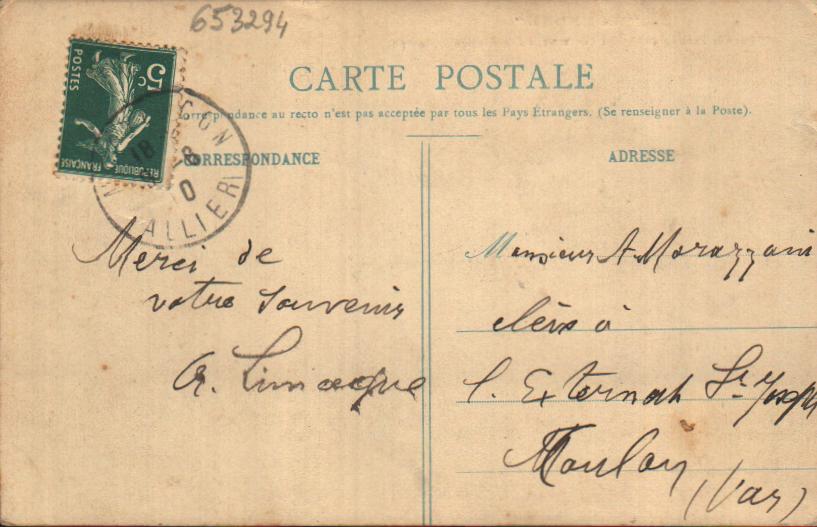 653294
5c
POSTES
REPUBLIQUE FRANÇAISE
CARTE POSTALE
Correspondance au recto n'est pas acceptée par tous les Pays Étrangers. (Se renseigner à la Poste).
CORRESPONDANCE
ADRESSE
18 8
ALLIER
Merci de
votre souvenir
A. Limacque
Monsieur A. Morazzani
élève à
l. Externat St Joseph
Toulon
(Var)